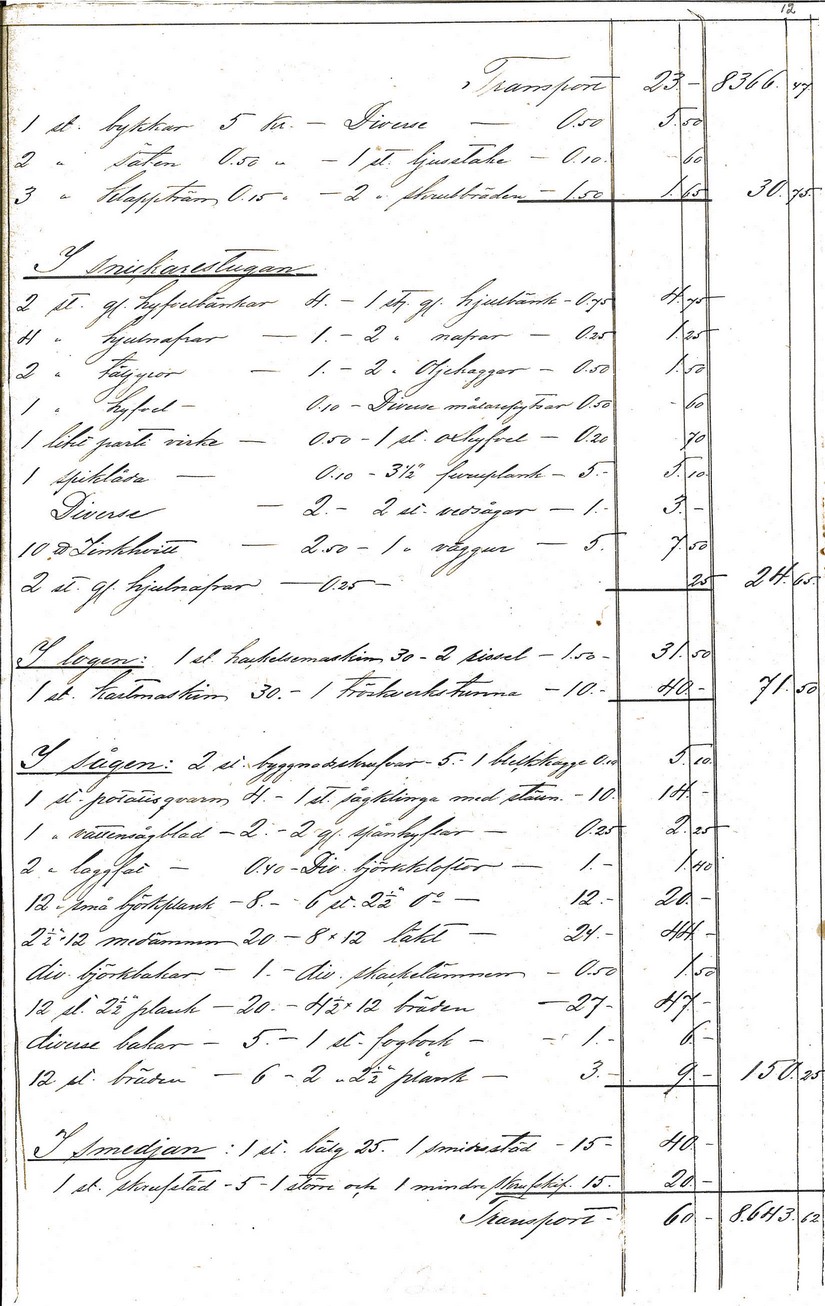 12
Transport 23.- 8366.47
1 st. bykkar 5 kr. - Diverse - 0.50 5.50
2 " Såten 0.50 " - 1 st. ljusstake - 0.10. 60
3 " Klappträn 0.15 " - 2 " skrufbräden - 1.50 1.65 30.75
I snickarestugan
2 st. gl. hyfvelbänkar 4. - 1 st. gl. hjulbänk - 0.75 4.75
4 " hjulnafrar - 1. - 2 " nafrar - 0.25 1.25
2 " täljyxor 1. - 2 " Oljekaggar - 0.50 1.50
1 " hyfvel - 0.10 - Diverse målaresytrar 0.50 60
1 litet parti virke - 0.50 - 1 st. oxhyfvel - 0.20 70
1 spiklåda - 0.10 - 3½" furuplank - 5.- 5.10
Diverse - 2.- 2 st. vedsågar - 1.- 3.-
10 ℔ Zinkhvitt - 2.50 - 1 " väggur - 5. 7.50
2 st. gl. hjulnafrar - 0.25 - 25 24.65
I logen: 1 st. hackelsemaskin 30 - 2 sissel - 1.50 - 31.50
1 st. kastmaskin 30.- 1 tröskverkstunna - 10.- 40.- 71.50
I sågen: 2 st. byggnadsskrufvar - 5.- 1 bleckkagge 0.10 5.10
1 st. potatisqvarn 4.- 1 st. sågklinga med - 10. 14.-
1 " vattensågblad - 2.- 2 gl. spånhyflar - 0.25 2.25
2 " laggfat - 0.40 - Div. björkkloftor - 1.- 1.40
12 " små björkplank - 8.- 6 st. 2½" do - 12.- 20.-
2½" 12 medämnen 20 - 8 x 12 läkt - 24.- 44.-
div. björkbakar - 1.- div. skackelämnen - 0.50 1.50
12 st. 2½" plank - 20.- 4½ x 12 bräden - 27- 47.-
diverse bakar - 5.- 1 st. fogbock - - 1.- 6.-
12 st. bräden - 6 - 2 " 2½" plank - 3.- 9.- 150.25
I smedjan: 1 st. bälg 25. 1 smidesstäd - 15- 40.-
1 st. skrufstäd - 5 - 1 större och 1 mindre skrufskif. 15. 20.-
Transport - 60 - 8.643.62